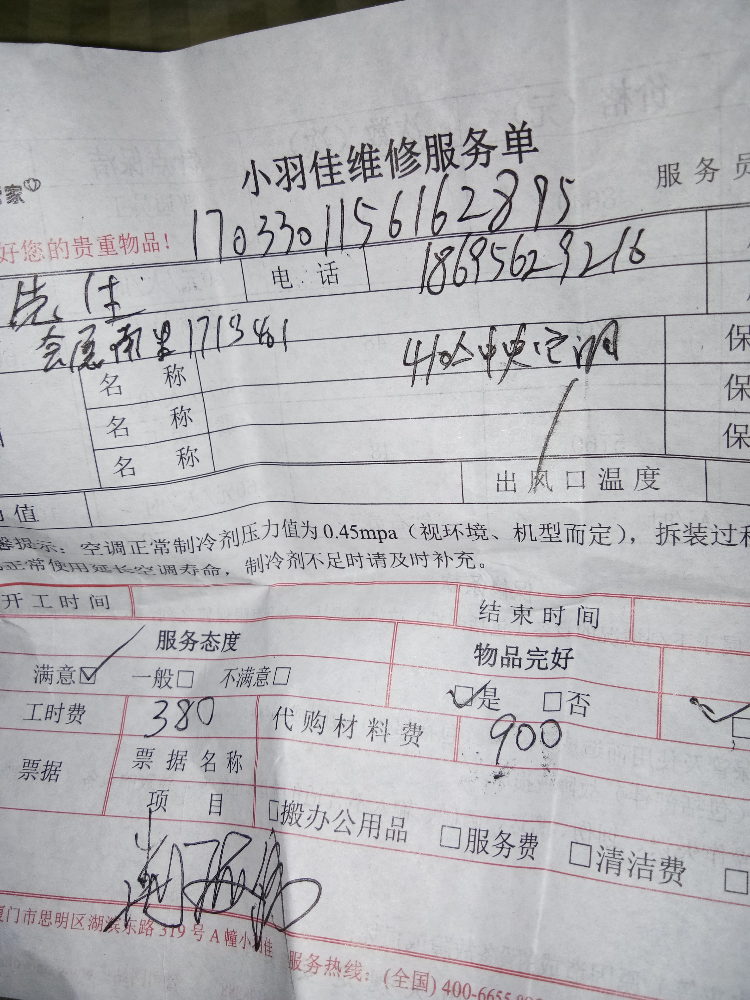 小羽佳维修服务单
服务员
家
好您的贵重物品!
1703301156162895
电话 18695629216
会展南里1713401
名称 中央空调 保
名称 保
名称 保
出风口温度
力值
提示:空调正常制冷剂压力值为0.45mpa(视环境、机型而定),拆装过程
正常使用延长空调寿命,制冷剂不足时请及时补充。
开工时间 结束时间
服务态度 物品完好
满意☑ 一般□ 不满意□ ☑是 □否
工时费 380 代购材料费 900
票据 票据名称
项目 □搬办公用品 □服务费 □清洁费 □
厦门市思明区湖滨东路319号A幢小羽佳 服务热线:(全国)400-6655